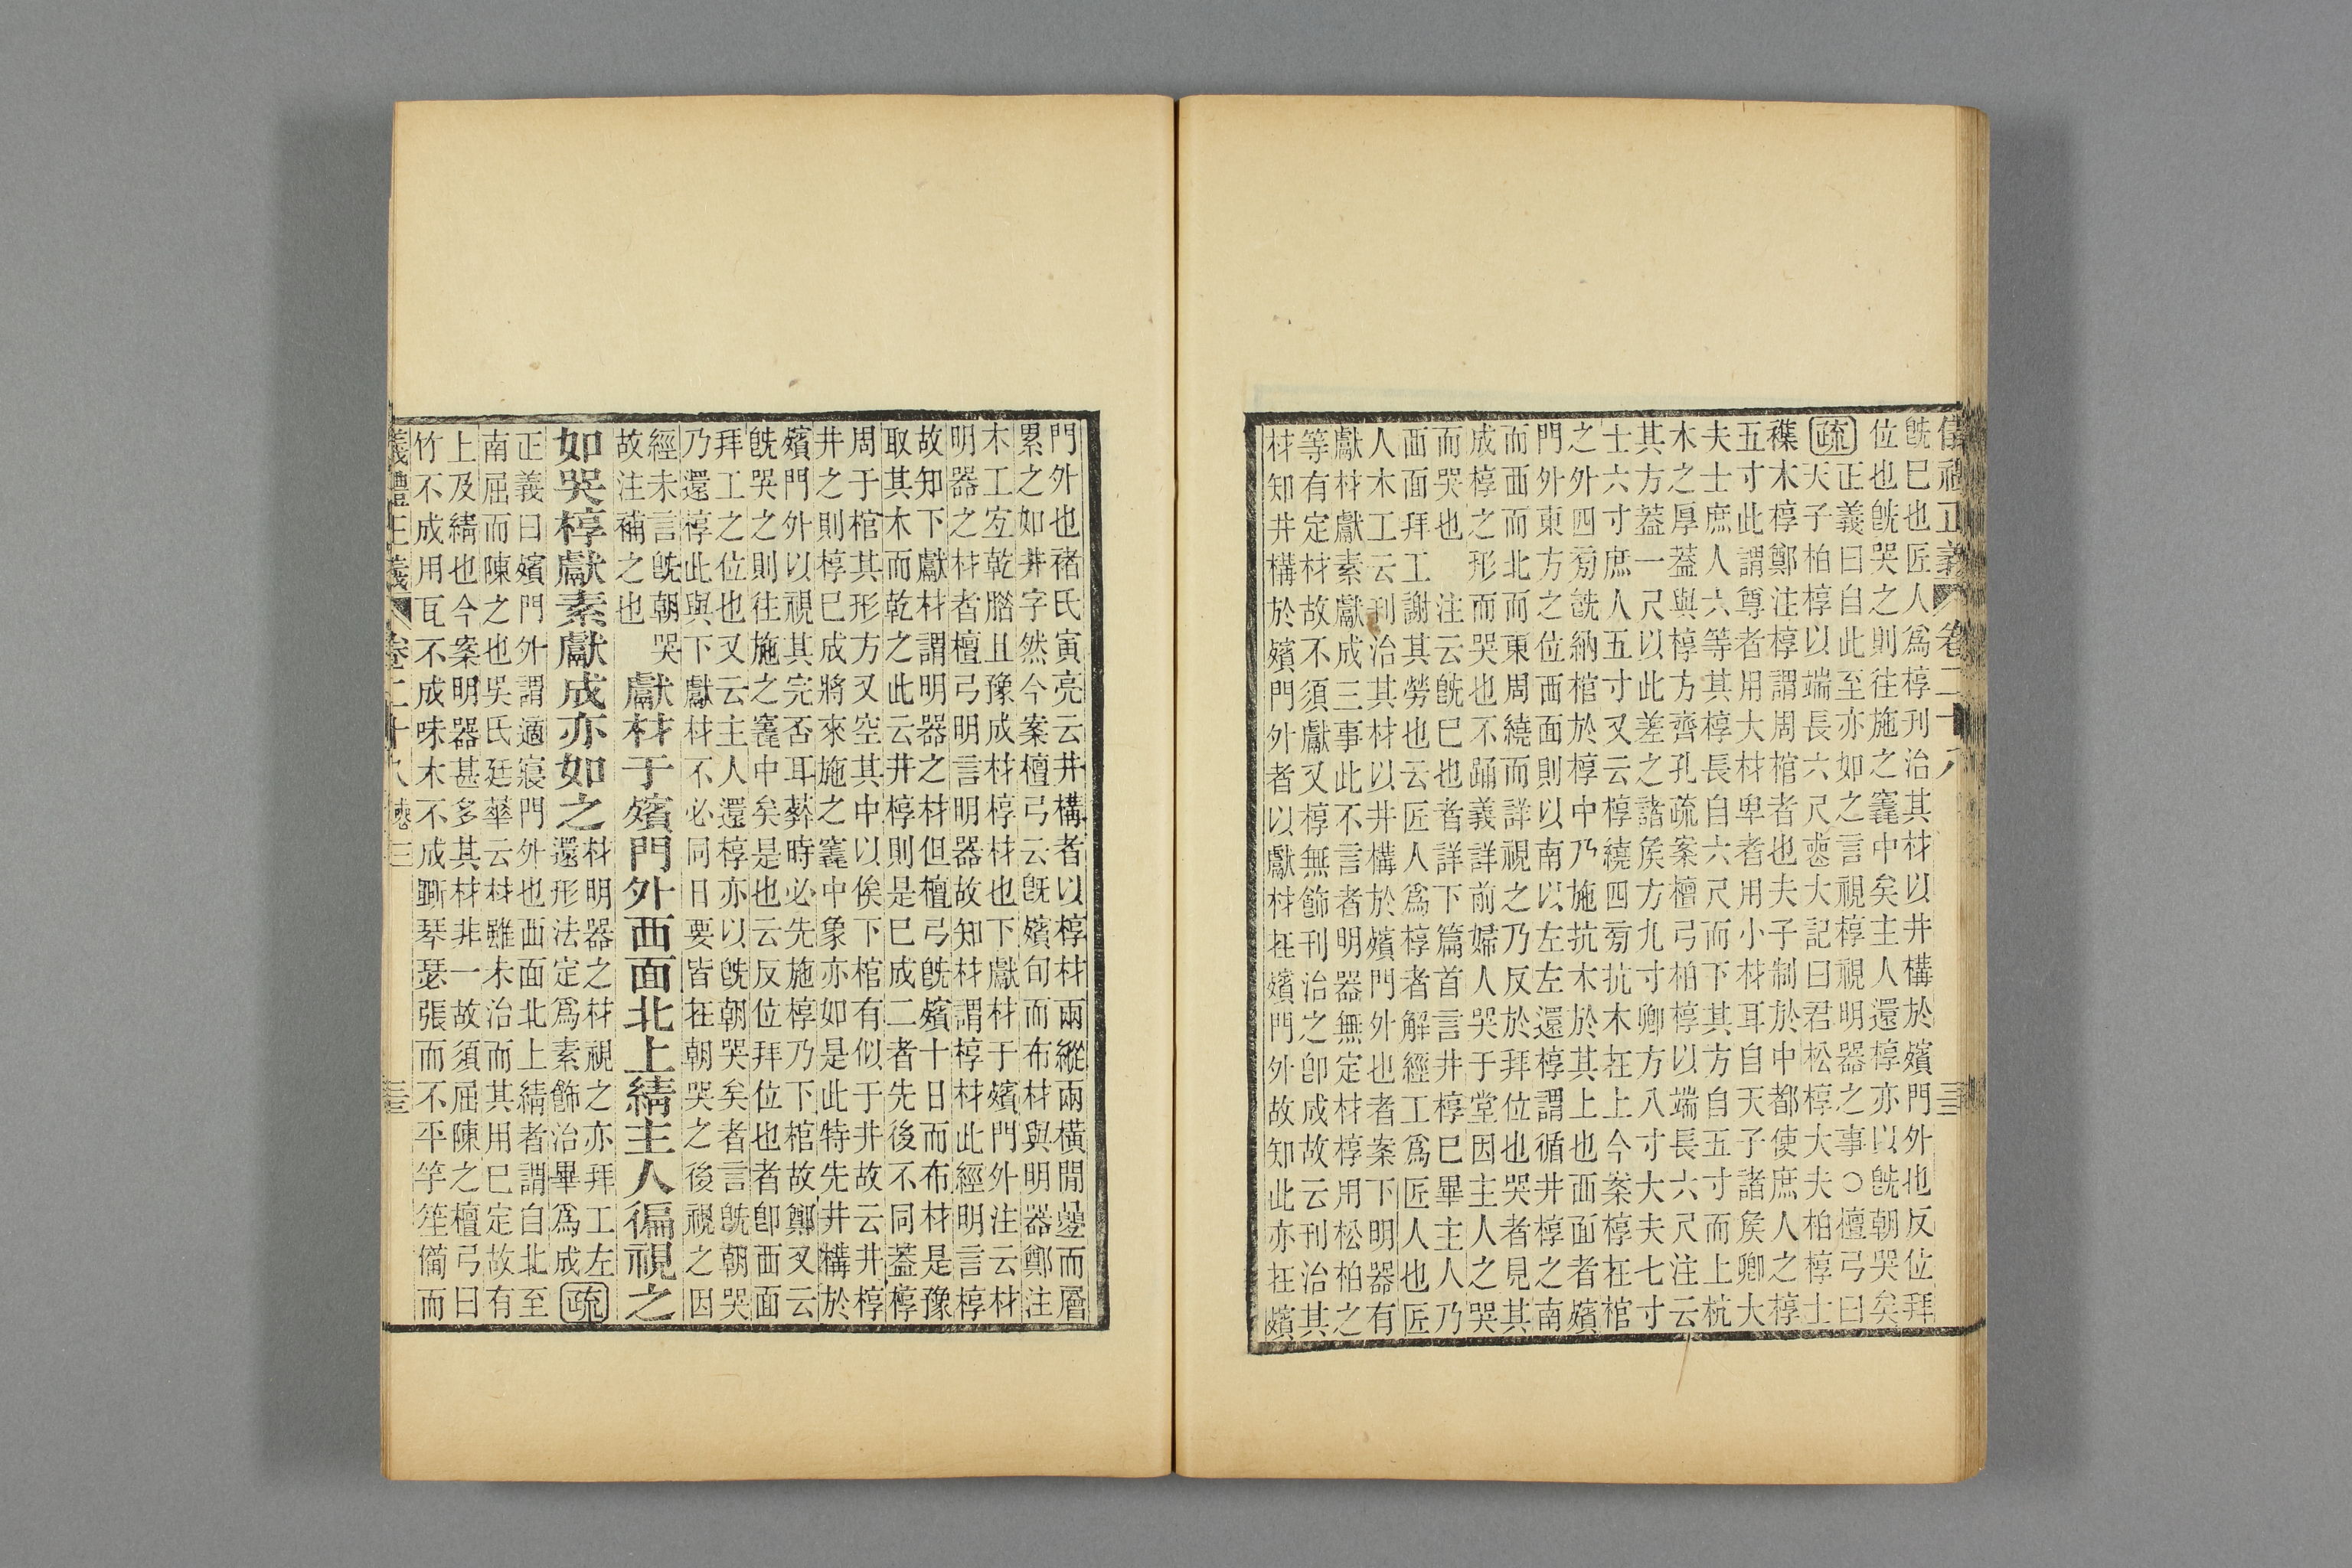 儀禮正義 卷二十八 三三
旣巳也匠人爲椁刋治其材以井構於殯門外也反位拜
位也旣哭之則往施之竁中矣主人還椁亦以旣朝哭矣
疏
正義曰自此至亦如之言視椁視明器之事○檀弓曰
天子柏椁以端長六尺喪大記曰君松椁大夫柏椁士
襍木椁鄭注椁謂周棺者也夫子制於中都使庶人之椁
五寸此謂尊者用大材卑者用小材耳自天子諸矦卿大
夫士庶人六等其椁長自六尺而下其方自五寸而上杭
木之厚蓋與椁方齊孔疏案檀弓柏椁以端長六尺注云
其方蓋一尺以此差之諸矦方九寸卿方八寸大夫七寸
士六寸庶人五寸又云椁繞四旁抗木在上今案椁在棺
之外四旁旣納棺於椁中乃施抗木於其上也西面者殯
門外東方之位西面則以南以左左還椁謂循井椁之南
而西而北而東周繞而詳視之乃反於拜位也哭者見其
成椁之形而哭也不踊義詳前婦人哭于堂因主人之哭
而哭也 注云旣巳也者詳下篇首言井椁巳畢主人乃
西面拜工 謝其勞也云匠人爲椁者解經工爲匠人也匠
人木工云刋治其材以井構於殯門外也者案下明器有
獻材獻素獻成三事此不言者明器無定材椁用松柏之
等有定材故不須獻又椁無飾刋治之卽成故云刋治其
材知井構於殯門外者以獻材在殯門外故知此亦在殯
門外也褚氏寅亮云井構者以椁材兩縱兩橫閒而層
累之如井字然今案檀弓云旣殯旬而布材與明器鄭注
木工宐乾腊且豫成材椁材也下獻材于殯門外注云材
明器之材者檀弓明言明器故知材謂椁材此經明言椁
故知下獻材謂明器之材但檀弓旣殯十日而布材是豫
取其木而乾之此云井椁則是巳成二者先後不同蓋椁
周于棺其形方又空其中以俟下棺有似于井故云井椁
井之則椁巳成將來施之竁中象亦如是此特先井構於
殯門外以視其完否耳葬時必先施椁乃下棺故鄭又云
旣哭之則往施之竁中矣是也云反位拜位也者卽西面
拜工之位也又云主人還椁亦以旣朝哭矣者言旣朝哭
乃還椁此與下獻材不必同日要皆在朝哭之後視之因
經未言旣朝哭
故注補之也
獻材于殯門外西面北上綪主人徧視之
如哭椁獻素獻成亦如之
材明器之材視之亦拜工左
還形法定爲素飾治畢爲成
疏
正義曰殯門外謂適寢門外也西面北上綪者謂自北至
南屈而陳之也吳氏廷華云材雖未治而其用巳定故有
上及綪也今案明器甚多其材非一故須屈陳之檀弓曰
竹不成用瓦不成味木不成斵琴瑟張而不平竽笙備而
義禮正義 卷二十八 喪三 三三